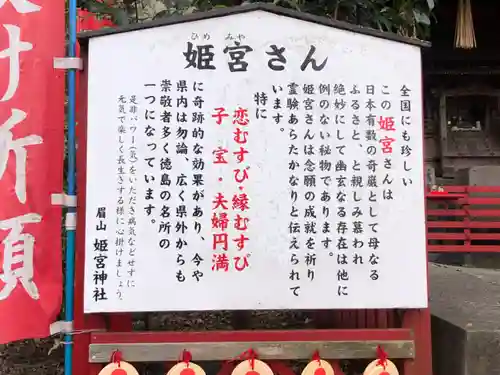 ひめ みや
姫宮さん
全国にも珍しい
この姫宮さんは
日本有数の奇巌として母なる
ふるさと、と親しみ慕われ
絶妙にして幽玄なる存在は他に
例のない秘物であります。
姫宮さんは念願の成就を祈り
霊験あらたかなりと伝えられて
います。
特に
恋むすび・縁むすび
子宝・夫婦円満
に奇跡的な効果があり、今や
県内は勿論、広く県外からも
崇敬者多く徳島の名所の
一つになっています。
是非パワー(気)をいただき病気などせずに
元気で楽しく長生きする様に心掛けましょう
眉山 姫宮神社
け祈願